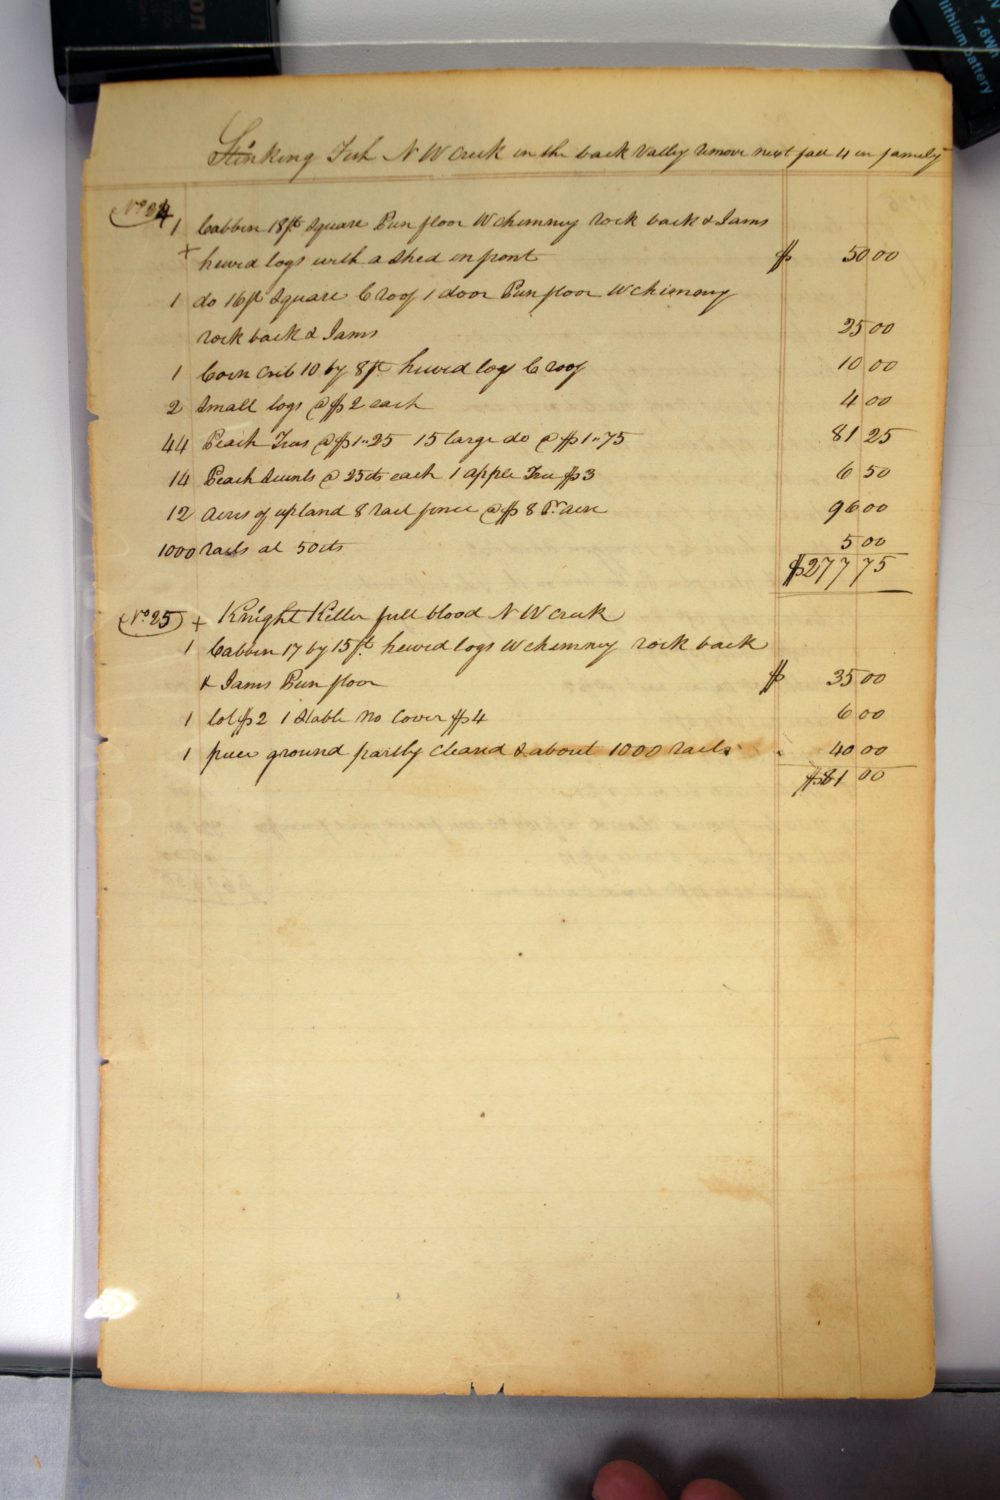 Stinking Fish N W Creek in the back Valley remove next fall 4 in family
No 24
1 Cabbin 18ft Square Pun floor W chimney rock back & Jams
+ hewed logs with a Shed in front $ 50 00
1 do 16ft Square C roof 1 door Pun floor W chimney
rock back & Jams 25 00
1 Corn Crib 10 by 8ft hewed logs C roof 10 00
2 Small logs @ $2 each 4 00
44 Peach Trees @ $1"25 15 large do @ $1"75 81 25
14 Peach @ 25cts each 1 apple Tree $3 6 50
12 acres of upland 8 rail fence @ $8 Pr. acre 96 00
1000 rails at 50cts 5 00
$277 75
No 25 + Knight Killer full blood N W Creek
1 Cabbin 17 by 15ft hewed logs W chimney rock back
& Jams Pun floor $ 35 00
1 lot $2 1 Stable no Cover $4 6 00
1 piece ground partly Cleared & about 1000 rails 40 00
$81 00
7.6Wh
lithium battery